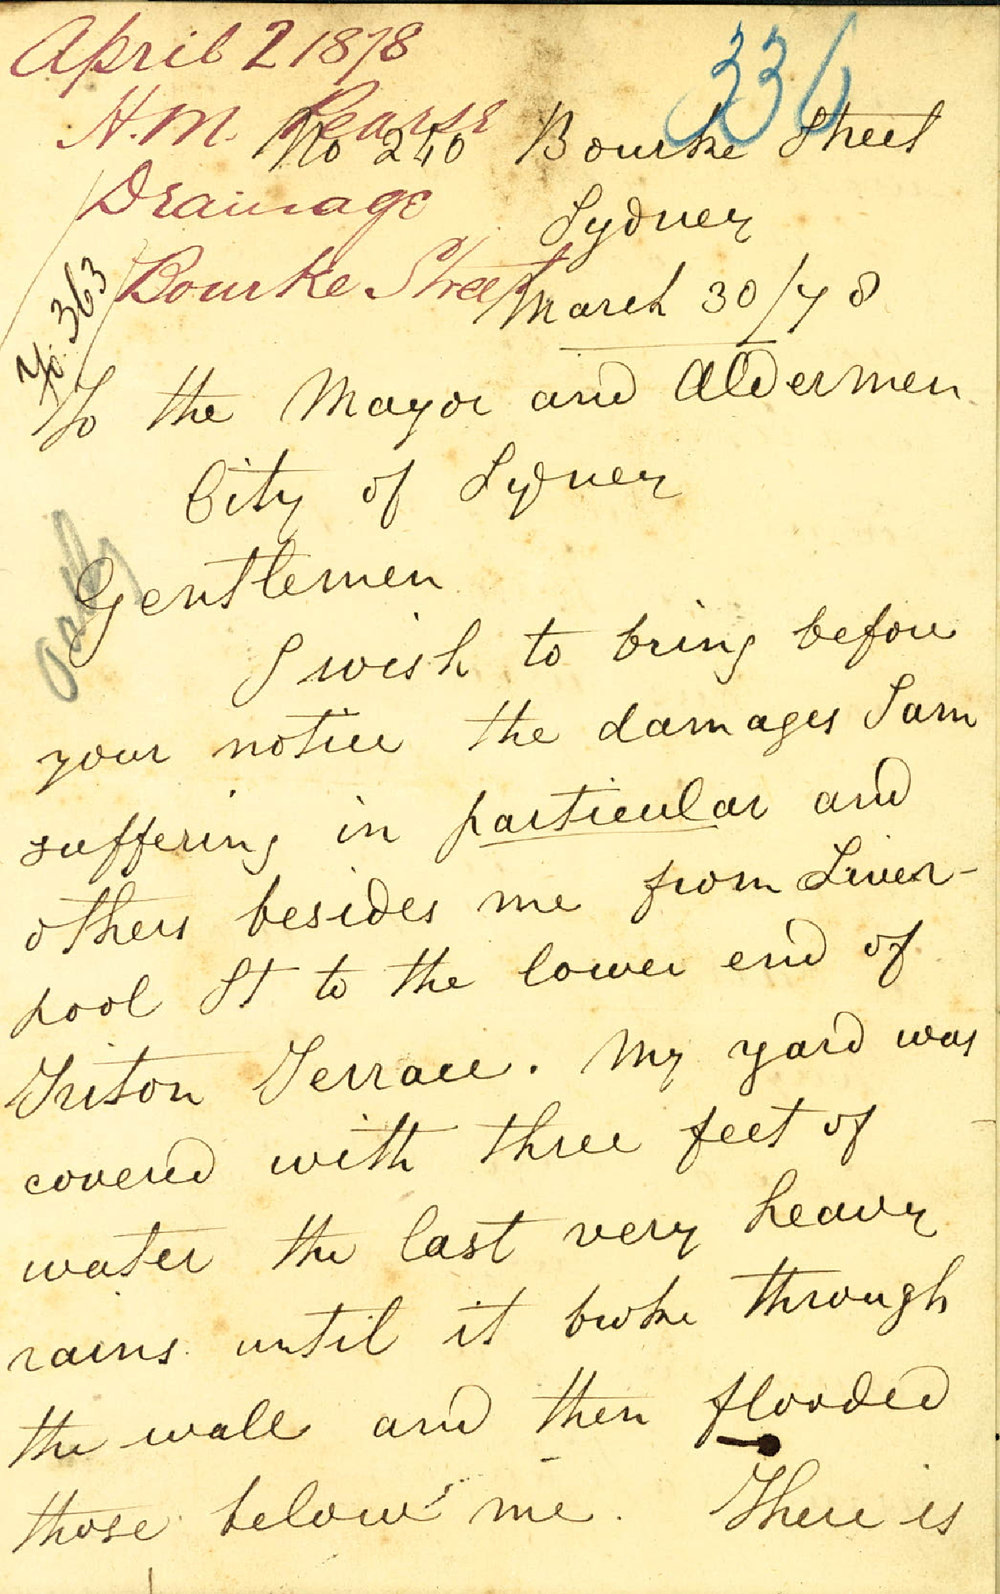 April 2 1878
336
H.M. Pearse
No 240 Bourke Street
Drainage
Sydney
Bourke Street
March 30/78
No. 363
To the Mayor and Aldermen
City of Sydney
Gentlemen
I wish to bring before
your notice the damages I am
suffering in particular and
others besides me from Liver-
pool St to the lower end of
Triton Terrace. My yard was
covered with three feet of
water the last very heavy
rains until it broke through
the wall and then flooded
those below me. There is